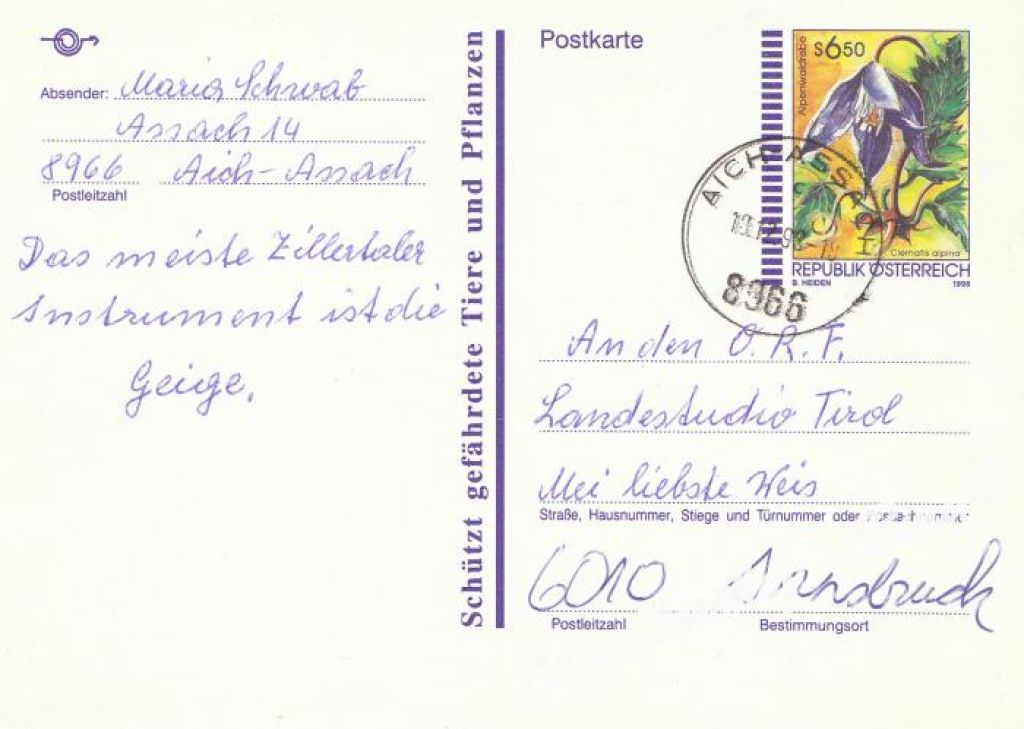 Absender: Maria Schwab
Assach 14
8966 Aich-Assach
Postleitzahl
Das meiste Zillertaler
Instrument ist die
Geige.
Schützt gefährdete Tiere und Pflanzen
Postkarte
S650
Alpenwaldrebe
Clematis alpina
REPUBLIK ÖSTERREICH
B. HEIDEN 1998
AICH-ASSACH
8966
An den O.R.F.
Landestudio Tirol
Mei liebste Weis
Straße, Hausnummer, Stiege und Türnummer oder
6010 Innsbruck
Postleitzahl Bestimmungsort